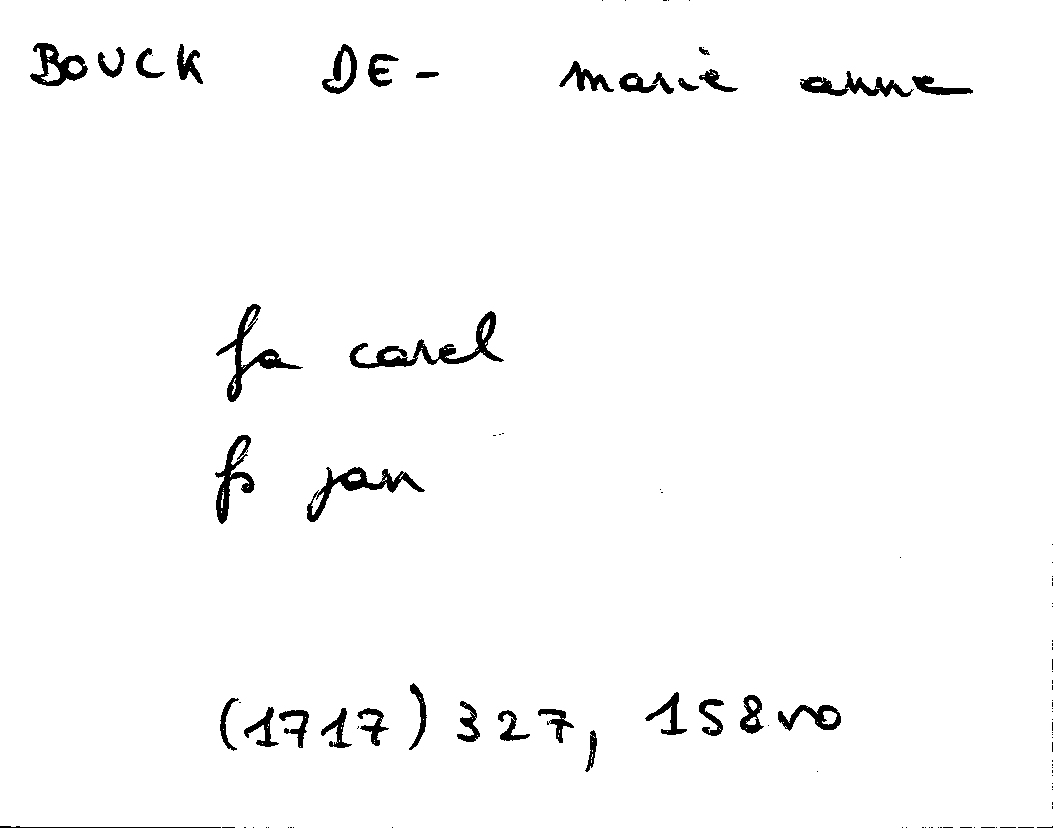 BOUCK DE- marie anne
fa carel
fs jan
(1717) 327, 158vo